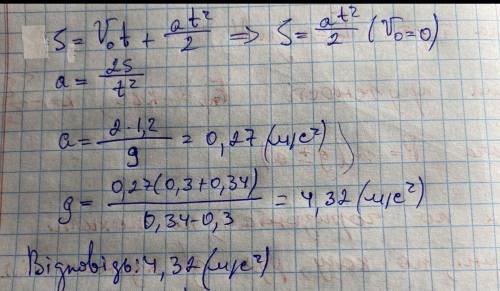 S = V₀t + at²/2 => S = at²/2 (V₀=0)
a = 2S/t²
a = 2·1,2/9 = 0,27 (м/с²)
g = 0,27(0,3+0,34)/0,34-0,3 = 4,32 (м/с²)
Відповідь: 4,32 (м/с²)